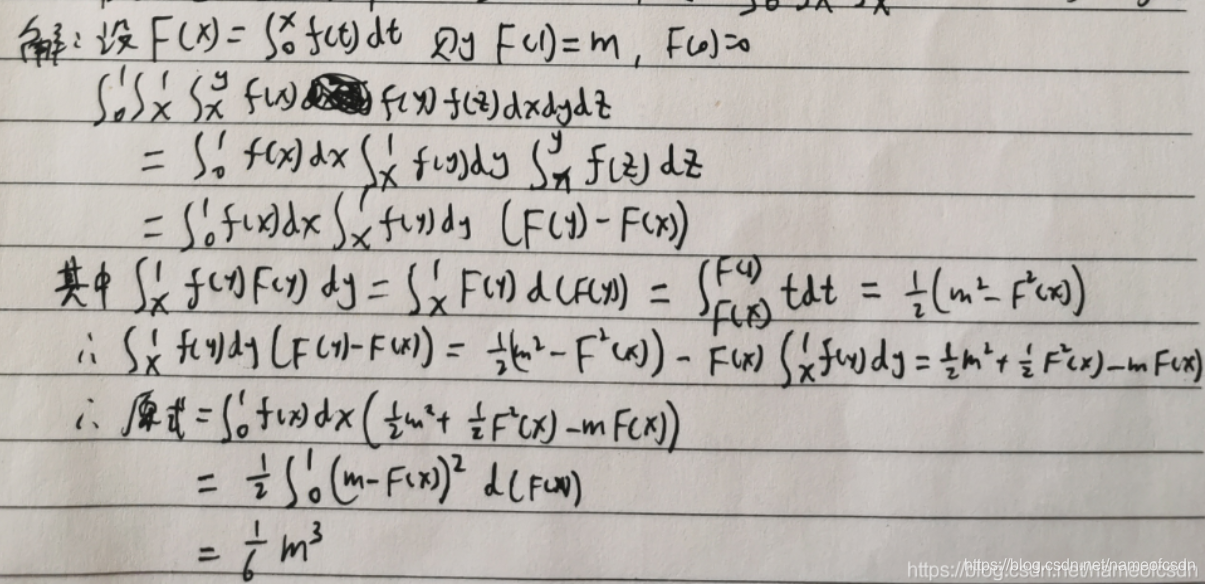 解：设 F(x) = ∫₀ˣ f(t) dt 则 F(1) = m , F(0)=0
∫₀¹ ∫ₓ¹ ∫ₓʸ f(x) f(y) f(z) dxdydz
= ∫₀¹ f(x) dx ∫ₓ¹ f(y) dy ∫ₓʸ f(z) dz
= ∫₀¹ f(x) dx ∫ₓ¹ f(y) dy (F(y) - F(x))
其中 ∫ₓ¹ f(y) F(y) dy = ∫ₓ¹ F(y) d(F(y)) = ∫_{F(x)}^{F(1)} t dt = ½(m² - F²(x))
∴ ∫ₓ¹ f(y) dy (F(y) - F(x)) = ½(m² - F²(x)) - F(x) ∫ₓ¹ f(y) dy = ½m² + ½F²(x) - mF(x)
∴ 原式 = ∫₀¹ f(x) dx (½m² + ½F²(x) - mF(x))
= ½ ∫₀¹ (m - F(x))² d(F(x))
= ⅙ m³
https://blog.csdn.net/nameofcsdn
https://blog.csdn.net/nameofcsdn